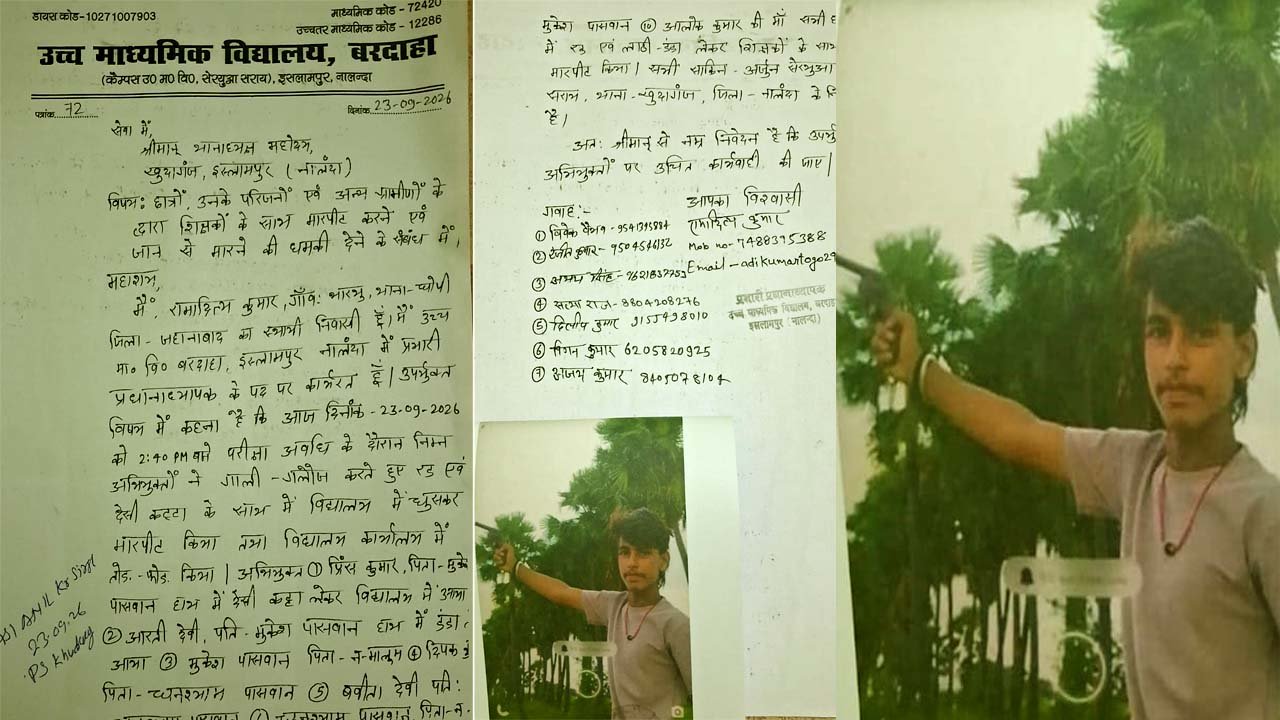 डायस कोड-10271007903
माध्यमिक कोड - 72420
उच्चतर माध्यमिक कोड - 12286
उच्च माध्यमिक विद्यालय, बरदाहा
(कैम्पस उ० म० वि०, सेरथुआ सराय), इसलामपुर, नालन्दा
पत्रांक 72
दिनांक 23-09-2026
सेवा में,
श्रीमान् थानाध्यक्ष महोदय,
खुदागंज, इस्लामपुर (नालंदा)
विषय: छात्रों, उनके परिजनों एवं अन्य ग्रामीणों के
द्वारा शिक्षकों के साथ मारपीट करने एवं
जान से मारने की धमकी देने के संबंध में,
महाशय,
मैं, रामादित्य कुमार, गाँव:
जिला - जहानाबाद का स्थायी निवासी हूँ। मैं उच्च
मा० वि० बरदाहा, इस्लामपुर नालंदा में प्रभारी
प्रधानाध्यापक के पद पर कार्यरत हूँ। उपर्युक्त
विषय में कहना है कि आज दिनांक - 23-09-2026
को 2:40 PM बजे परीक्षा अवधि के दौरान निम्न
अभियुक्तों ने गाली - गलौज करते हुए रड एवं
देसी कट्टा के साथ में विद्यालय में घुसकर
मारपीट किया तथा विद्यालय कार्यालय में
तोड़ - फोड़ किया। अभियुक्त ① प्रिंस कुमार, पिता - मुकेश
पासवान हाथ में देसी कट्टा लेकर विद्यालय में आया
② आरती देवी, पति - मुकेश पासवान हाथ में डंडा
आया ③ मुकेश पासवान पिता - न-मालूम ④ दिपक
पिता - घनश्याम पासवान ⑤ बबीता देवी पति:
पासवान पिता - न-
23.09.26
मुकेश पासवान ⑩ आलोक कुमार की माँ सभी
में रड एवं लाठी-डंडा लेकर शिक्षकों के साथ
मारपीट किया। सभी साकिन - सेरथुआ
सराय, थाना - खुदागंज, जिला - नालंदा के
है।
अत: श्रीमान् से नम्र निवेदन है कि उपर्यु
अभियुक्तों पर उचित कार्यवाही की जाए।
आपका विश्वासी
रामादित्य कुमार
Mob no- 7488395388
गवाह:-
①
②
③
④ सत्या राज - 8804208276
⑤ दिलीप कुमार 9155498010
⑥ कुमार 6205820925
⑦ अजय कुमार 8405078104
प्रभारी प्रधानाध्यापक
उच्च माध्यमिक विद्यालय, बरदाहा
इसलामपुर (नालन्दा)